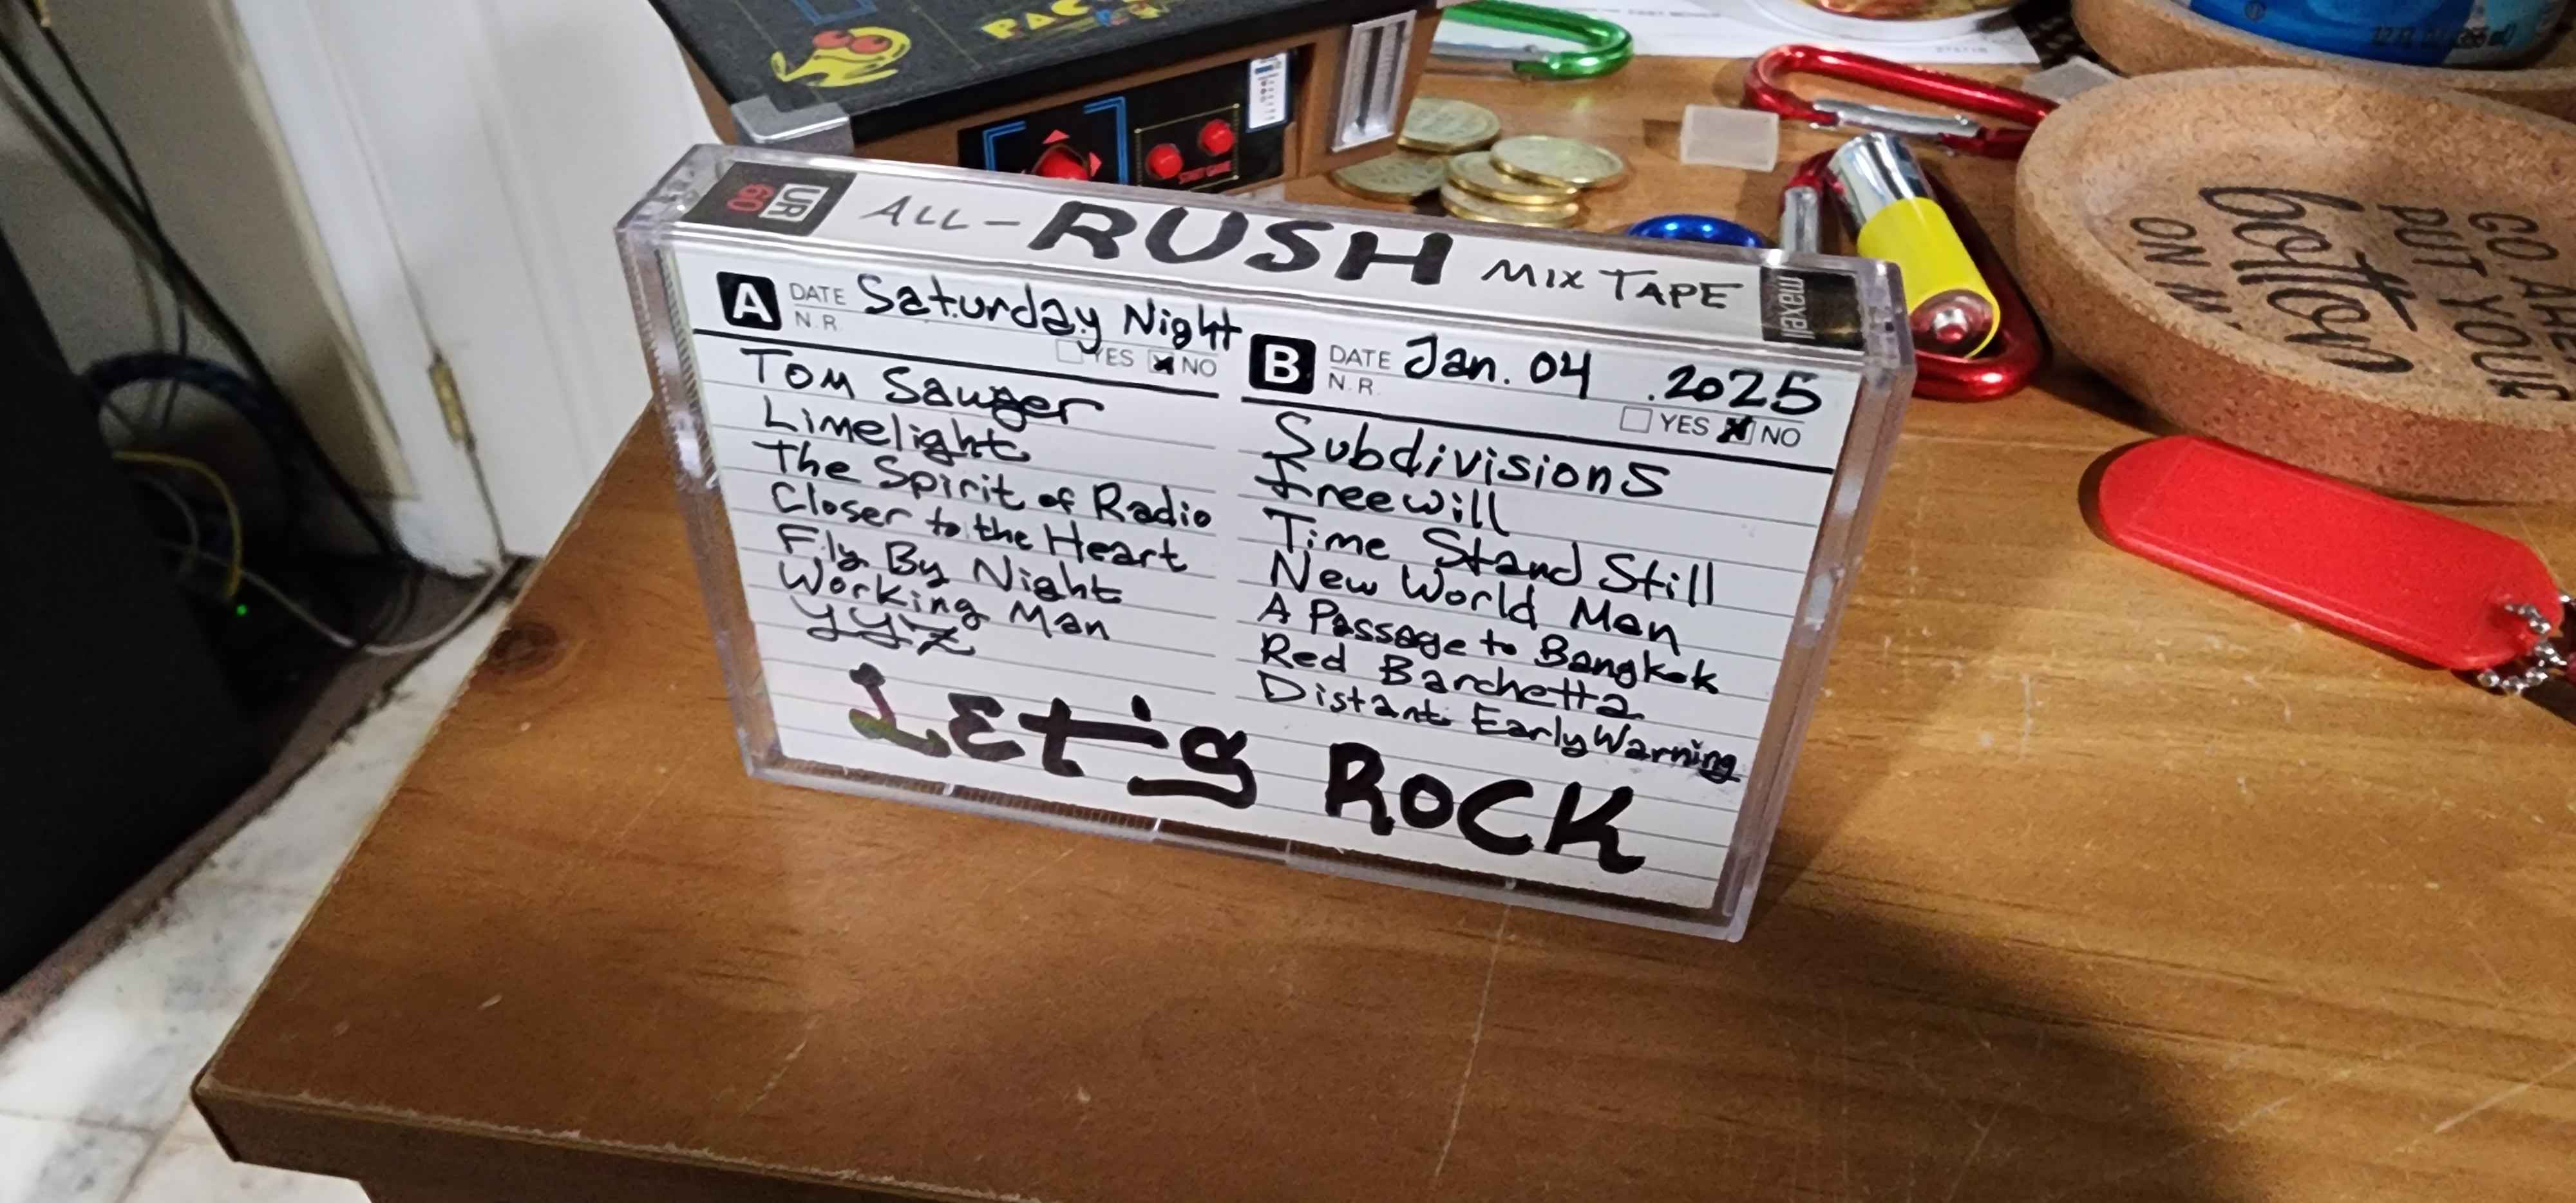 PAC
START GAME
UR
60
ALL-RUSH MIX TAPE
maxell
A DATE Saturday Night
N.R. YES NO
Tom Sawyer
Limelight
The Spirit of Radio
Closer to the Heart
Fly By Night
Working Man
YYZ
B DATE Jan. 04 .2025
N.R. YES NO
Subdivisions
Freewill
Time Stand Still
New World Man
A Passage to Bangkok
Red Barchetta
Distant Early Warning
Let's ROCK
GO AHE
PUT YOUR
bottom
ON M